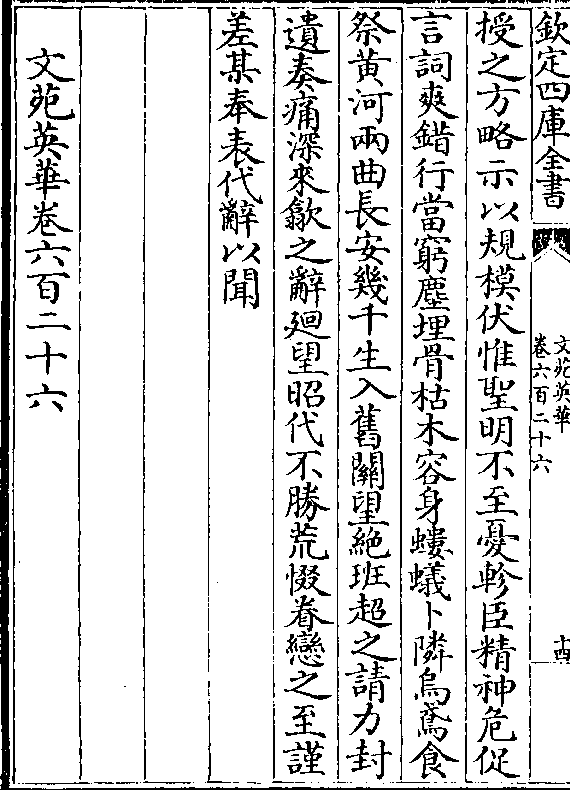 欽定四庫全書
文苑英華
卷六百二十六
十四
授之方略示以規模伏惟聖明不至憂軫臣精神危促
言詞爽錯行當窮塵埋骨枯木容身螻蟻卜隣烏鳶食
祭黄河兩曲長安幾千生入舊關望絶班超之請力封
遺奏痛深來歙之辭廻望昭代不勝荒惙眷戀之至謹
差某奉表代辭以聞
文苑英華卷六百二十六